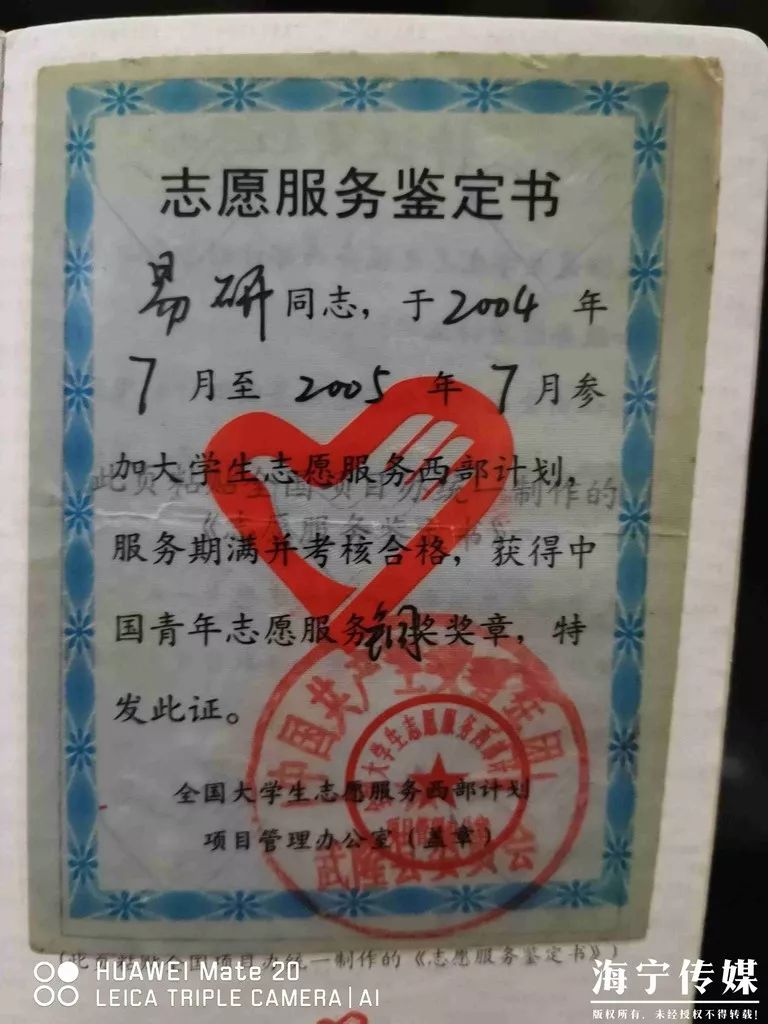 志愿服务鉴定书
易研同志，于2004年
7月至2005年7月参
加大学生志愿服务西部计划，
服务期满并考核合格，获得中
国青年志愿服务铜奖奖章，特
发此证。
全国大学生志愿服务西部计划
项目管理办公室（盖章）
中国共产主义青年团
武隆县委员会
此页粘贴全国项目办统一制作的
《志愿服务鉴定书》
（此页粘贴全国项目办统一制作的《志愿服务鉴定书》）
HUAWEI Mate 20
LEICA TRIPLE CAMERA | AI
海宁传媒
版权所有，未经授权不得转载！